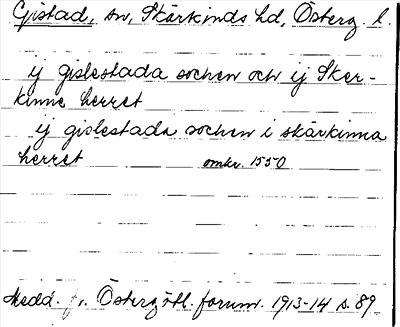 Gistad, sn, Skärkinds hd, Österg. l.
ij gislestada sochen och ij Sker-
kinne herret
ij gislestada sochen i skärkinna
herret omkr. 1550
Medd. fr. Östergötl. fornm. 1913-14 s. 89